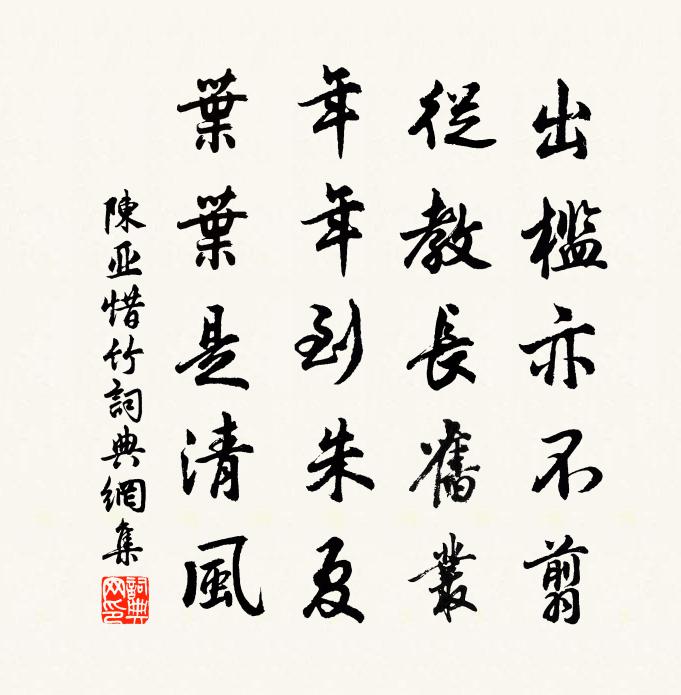 出檻亦不翦
從教長舊叢
年年到朱夏
葉葉是清風
陳亚惜竹詞典網集
詞典网印